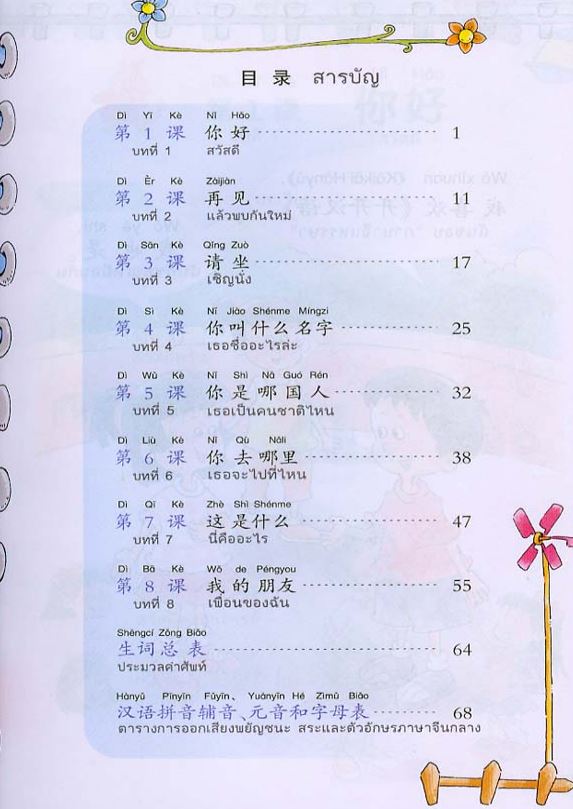 目 录 สารบัญ
Dì Yī Kè Nǐ Hǎo
第 1 课 你 好 1
บทที่ 1 สวัสดี
Dì Èr Kè Zàijiàn
第 2 课 再 见 11
บทที่ 2 แล้วพบกันใหม่
Dì Sān Kè Qǐng Zuò
第 3 课 请 坐 17
บทที่ 3 เชิญนั่ง
Dì Sì Kè Nǐ Jiào Shénme Míngzi
第 4 课 你 叫 什 么 名 字 25
บทที่ 4 เธอชื่ออะไรล่ะ
Dì Wǔ Kè Nǐ Shì Nǎ Guó Rén
第 5 课 你 是 哪 国 人 32
บทที่ 5 เธอเป็นคนชาติไหน
Dì Liù Kè Nǐ Qù Nǎli
第 6 课 你 去 哪 里 38
บทที่ 6 เธอจะไปที่ไหน
Dì Qī Kè Zhè Shì Shénme
第 7 课 这 是 什 么 47
บทที่ 7 นี่คืออะไร
Dì Bā Kè Wǒ de Péngyou
第 8 课 我 的 朋 友 55
บทที่ 8 เพื่อนของฉัน
Shēngcí Zǒng Biǎo
生 词 总 表 64
ประมวลคำศัพท์
Hànyǔ Pīnyīn Fǔyīn、 Yuányīn Hé Zìmǔ Biǎo
汉语拼音辅音、元音和字母表 68
ตารางการออกเสียงพยัญชนะ สระและตัวอักษรภาษาจีนกลาง